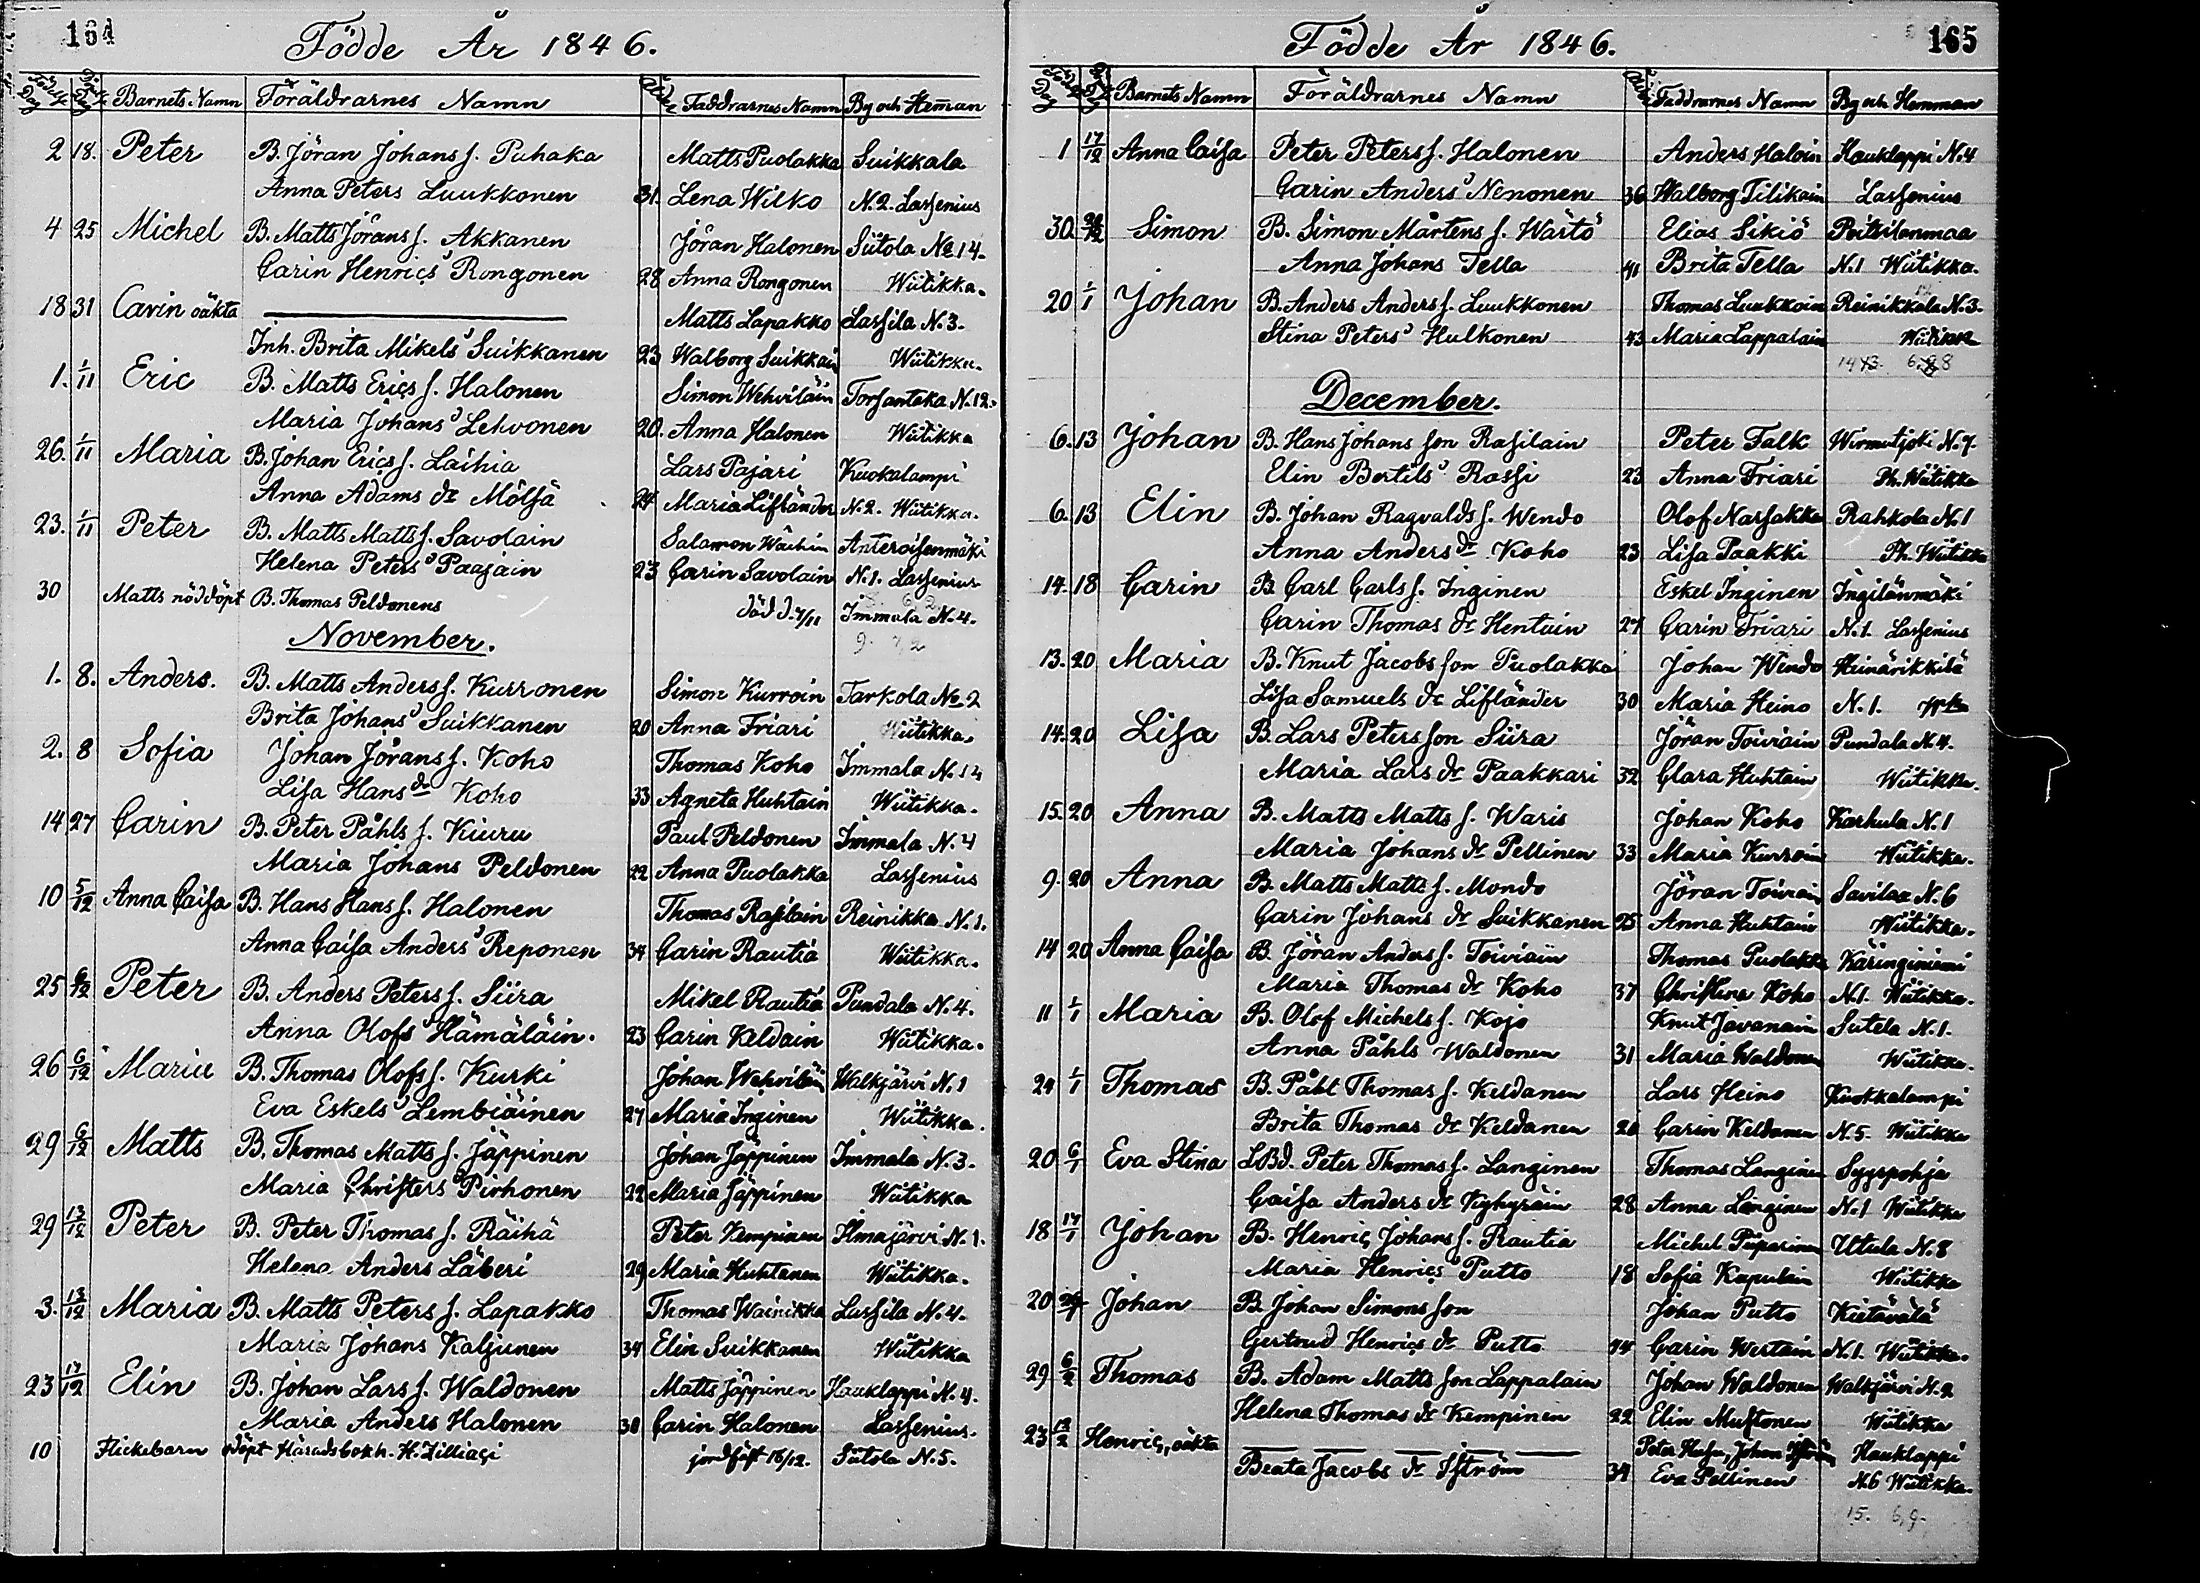 164
Födde År 1846.
Födelse Dag Döpelse Dag Barnets Namn Föräldrarnes Namn Ålder Faddrarnes Namn By och Heman
2 18. Peter B. Jöran Johans s. Puhaka Matts Puolakka Suikkala
Anna Peters Luukkonen 31. Lena Wilko N. 2. Lassenius
4 25 Michel B. Matts Jörans s. Akkanen Jöran Halonen Siitola No 14.
Carin Henrics Rongonen 28 Anna Rongonen Wiitikka.
18 31 Carin oäkta Matts Lapakko Lassila N. 3.
Inh. Brita Mikels Suikkanen 23 Walborg Suikkain Wiitikka.
1. 1/11 Eric B. Matts Erics s. Halonen Simon Wehviläin Torsanteka N. 12.
Maria Johans Lehvonen 20. Anna Halonen Wiitikka
26. 1/11 Maria B. Johan Erics s. Laihia Lars Pajari Kuokalampi
Anna Adams dr Mölsä 24 Maria Lifländer N. 2. Wiitikka.
23. 1/11 Peter B. Matts Matts s. Savolain Salamon Wäihin Anteroisenmäki
Helena Peters Paajain 23 Carin Savolain N. 1. Lassenius
30 Matts nöddöpt B. Thomas Peldonens död d. 7/11 Immala N. 4.
9. 7,2
November.
1. 8. Anders. B. Matts Anders s. Kurronen Simon Kurroin Tarkola No 2
Brita Johans Suikkanen 20 Anna Friari Wiitikka.
2. 8 Sofia Johan Jörans s. Koho Thomas Koho Immala N. 14
Lisa Hans dr Koho 33 Agneta Huhtain Wiitikka.
14 27 Carin B. Peter Påhls s. Kiuru Paul Peldonen Immala N. 4
Maria Johans Peldonen 22 Anna Puolakka Lassenius
10 5/12 Anna Caisa B. Hans Hans s. Halonen Thomas Rasilain Reinikka N. 1.
Anna Caisa Anders Reponen 34 Carin Rautia Wiitikka.
25 6/12 Peter B. Anders Peters s. Siira Mikel Rautia Pundala N. 4.
Anna Olofs Hämäläin. 23 Carin Keldain Wiitikka.
26 6/12 Maria B. Thomas Olofs s. Kurki Johan Wehviläin Walkjärvi N. 1
Eva Eskels Lembiäinen 27 Maria Inginen Wiitikka.
29 6/12 Matts B. Thomas Matts s. Jäppinen Johan Jäppinen Immala N. 3.
Maria Christers Pirhonen 22 Maria Jäppinen Wiitikka
29 13/12 Peter B. Peter Thomas s. Räihä Peter Kempinen Ilmajärvi N. 1.
Helena Anders Läberi 29 Maria Huhtanen Wiitikka.
3. 13/12 Maria B. Matts Peters s. Lapakko Thomas Wainikka Lassila N. 4.
Maria Johans Kaljunen 34 Elin Suikkanen Wiitikka
23 17/12 Elin B. Johan Lars s. Waldonen Matts Jäppinen Hauklappi N. 4.
Maria Anders Halonen 38 Carin Halonen Lassenius.
10 Flickebarn odöpt Häradsbokh. H. Zilliaci jordfäst 18/12. Siitola N. 5.
165
Födde År 1846.
Födelse Dag Döpelse Dag Barnets Namn Föräldrarnes Namn Ålder Faddrarnes Namn By och Hemman
1 17/12 Anna Caisa Peter Peters s. Halonen Anders Haloin Hauklappi N. 4
Carin Anders Nenonen 36 Walborg Tilikain Lassenius
30. Simon B. Simon Mårtens s. Wärtö Elias Sikiö Poitsilanmaa
Anna Johans Tella 41 Brita Tella N. 1 Wiitikka.
20 1/1 Johan B. Anders Anders s. Luukkonen Thomas Luukkoin Reinikkala N. 3.
Stina Peters Hulkonen 43 Maria Lappalain Wiitikka
December.
6. 13 Johan B. Hans Johans son Rasilain Peter Falk Wirmutjoki N. 7
Elin Bertils Rassi 23 Anna Friari Ph. Wiitikka
6. 13 Elin B. Johan Ragvalds s. Wendo Olof Nassakka Rahkola N. 1
Anna Anders dr Koho 23 Lisa Paakki Ph. Wiitikka
14. 18 Carin B. Carl Carls s. Inginen Eskel Inginen Ingilänmäki
Carin Thomas dr Hentuin 27 Carin Friari N. 1. Lassenius
13. 20 Maria B. Knut Jacobs son Puolakka Johan Wendo Heinärikkilä
Lisa Samuels dr Lifländer 30 Maria Heino N. 1.
14. 20 Lisa B. Lars Peters son Siira Jöran Toiviain Pundala N. 4.
Maria Lars dr Paakkari 32 Clara Huhtain Wiitikka.
15. 20 Anna B. Matts Matts s. Waris Johan Koho Karhula N. 1
Maria Johans dr Pellinen 33 Maria Kurroin Wiitikka.
9. 20 Anna B. Matts Matts s. Mondo Jöran Toiviain Savilaa N. 6
Carin Johans dr Suikkanen 25 Anna Huhtain Wiitikka.
14 20 Anna Caisa B. Jöran Anders s. Toiviain Thomas Puolakka Käringiniemi
Maria Thomas dr Koho 37 Christina Koho N. 1. Wiitikka.
11 1/1 Maria B. Olof Michels s. Kojo Knut Javanain Sutela N. 1.
Anna Påhls Waldonen 31 Maria Waldonen Wiitikka.
24 1/1 Thomas B. Påhl Thomas s. Keldanen Lars Heino Kuokkalampi
Brita Thomas dr Keldanen 20 Carin Keldanen N. 5. Wiitikka
20 6/1 Eva Stina LBd. Peter Thomas s. Langinen Thomas Langinen Syyspohja
Caisa Anders dr 28 Anna Langinen N. 1 Wiitikka
18 17/1 Johan B. Henric Johans s. Rautia Michel Piiparinen Utula N. 8
Maria Henrics Putto 18 Sofia Kapulain Wiitikka
20 Johan B. Johan Simons son Johan Putto Kietävälä
Gertrud Henrics dr Putto 44 Carin Wertain N. 1. Wiitikka.
29 6/2 Thomas B. Adam Matts son Lappalain Johan Waldonen Walkjärvi N. 2
Helena Thomas dr Kempinen 22 Elin Mustonen Wiitikka
23 12/2 Henric, oäkta Peter Huhn, Johan Hauklappi
Beata Jacobs dr Sjström 34 Eva Pellinen N. 6 Wiitikka.
15. 6,9.